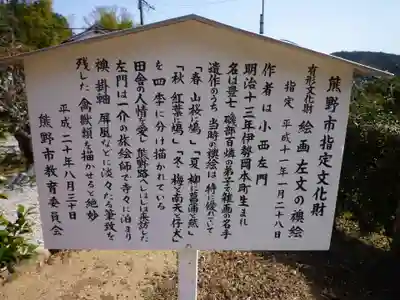 熊野市指定文化財
有形文化財 絵画 左文の襖絵
指定 平成十一年一月二十八日
作者は小西左門
明治十三年伊都岡本町生まれ
名は豊七 磯部百燐の弟子で雑画の名手
遺作のうち、当時の襖絵は、特に優れていて
「春、山桜に鳩」「夏、柳に菖蒲と燕」
「秋、紅葉に鳩」「冬、梅と南天と仔犬」
を四季に分け描かれている
田舎の人情を愛し、熊野路へしばしば来訪した
左門は一介の旅絵師で寺々に泊まり
襖、掛軸、屏風などに淡々たる筆致を
残した 禽獣類を描かせると絶妙
平成二十年八月三十日
熊野市教育委員会